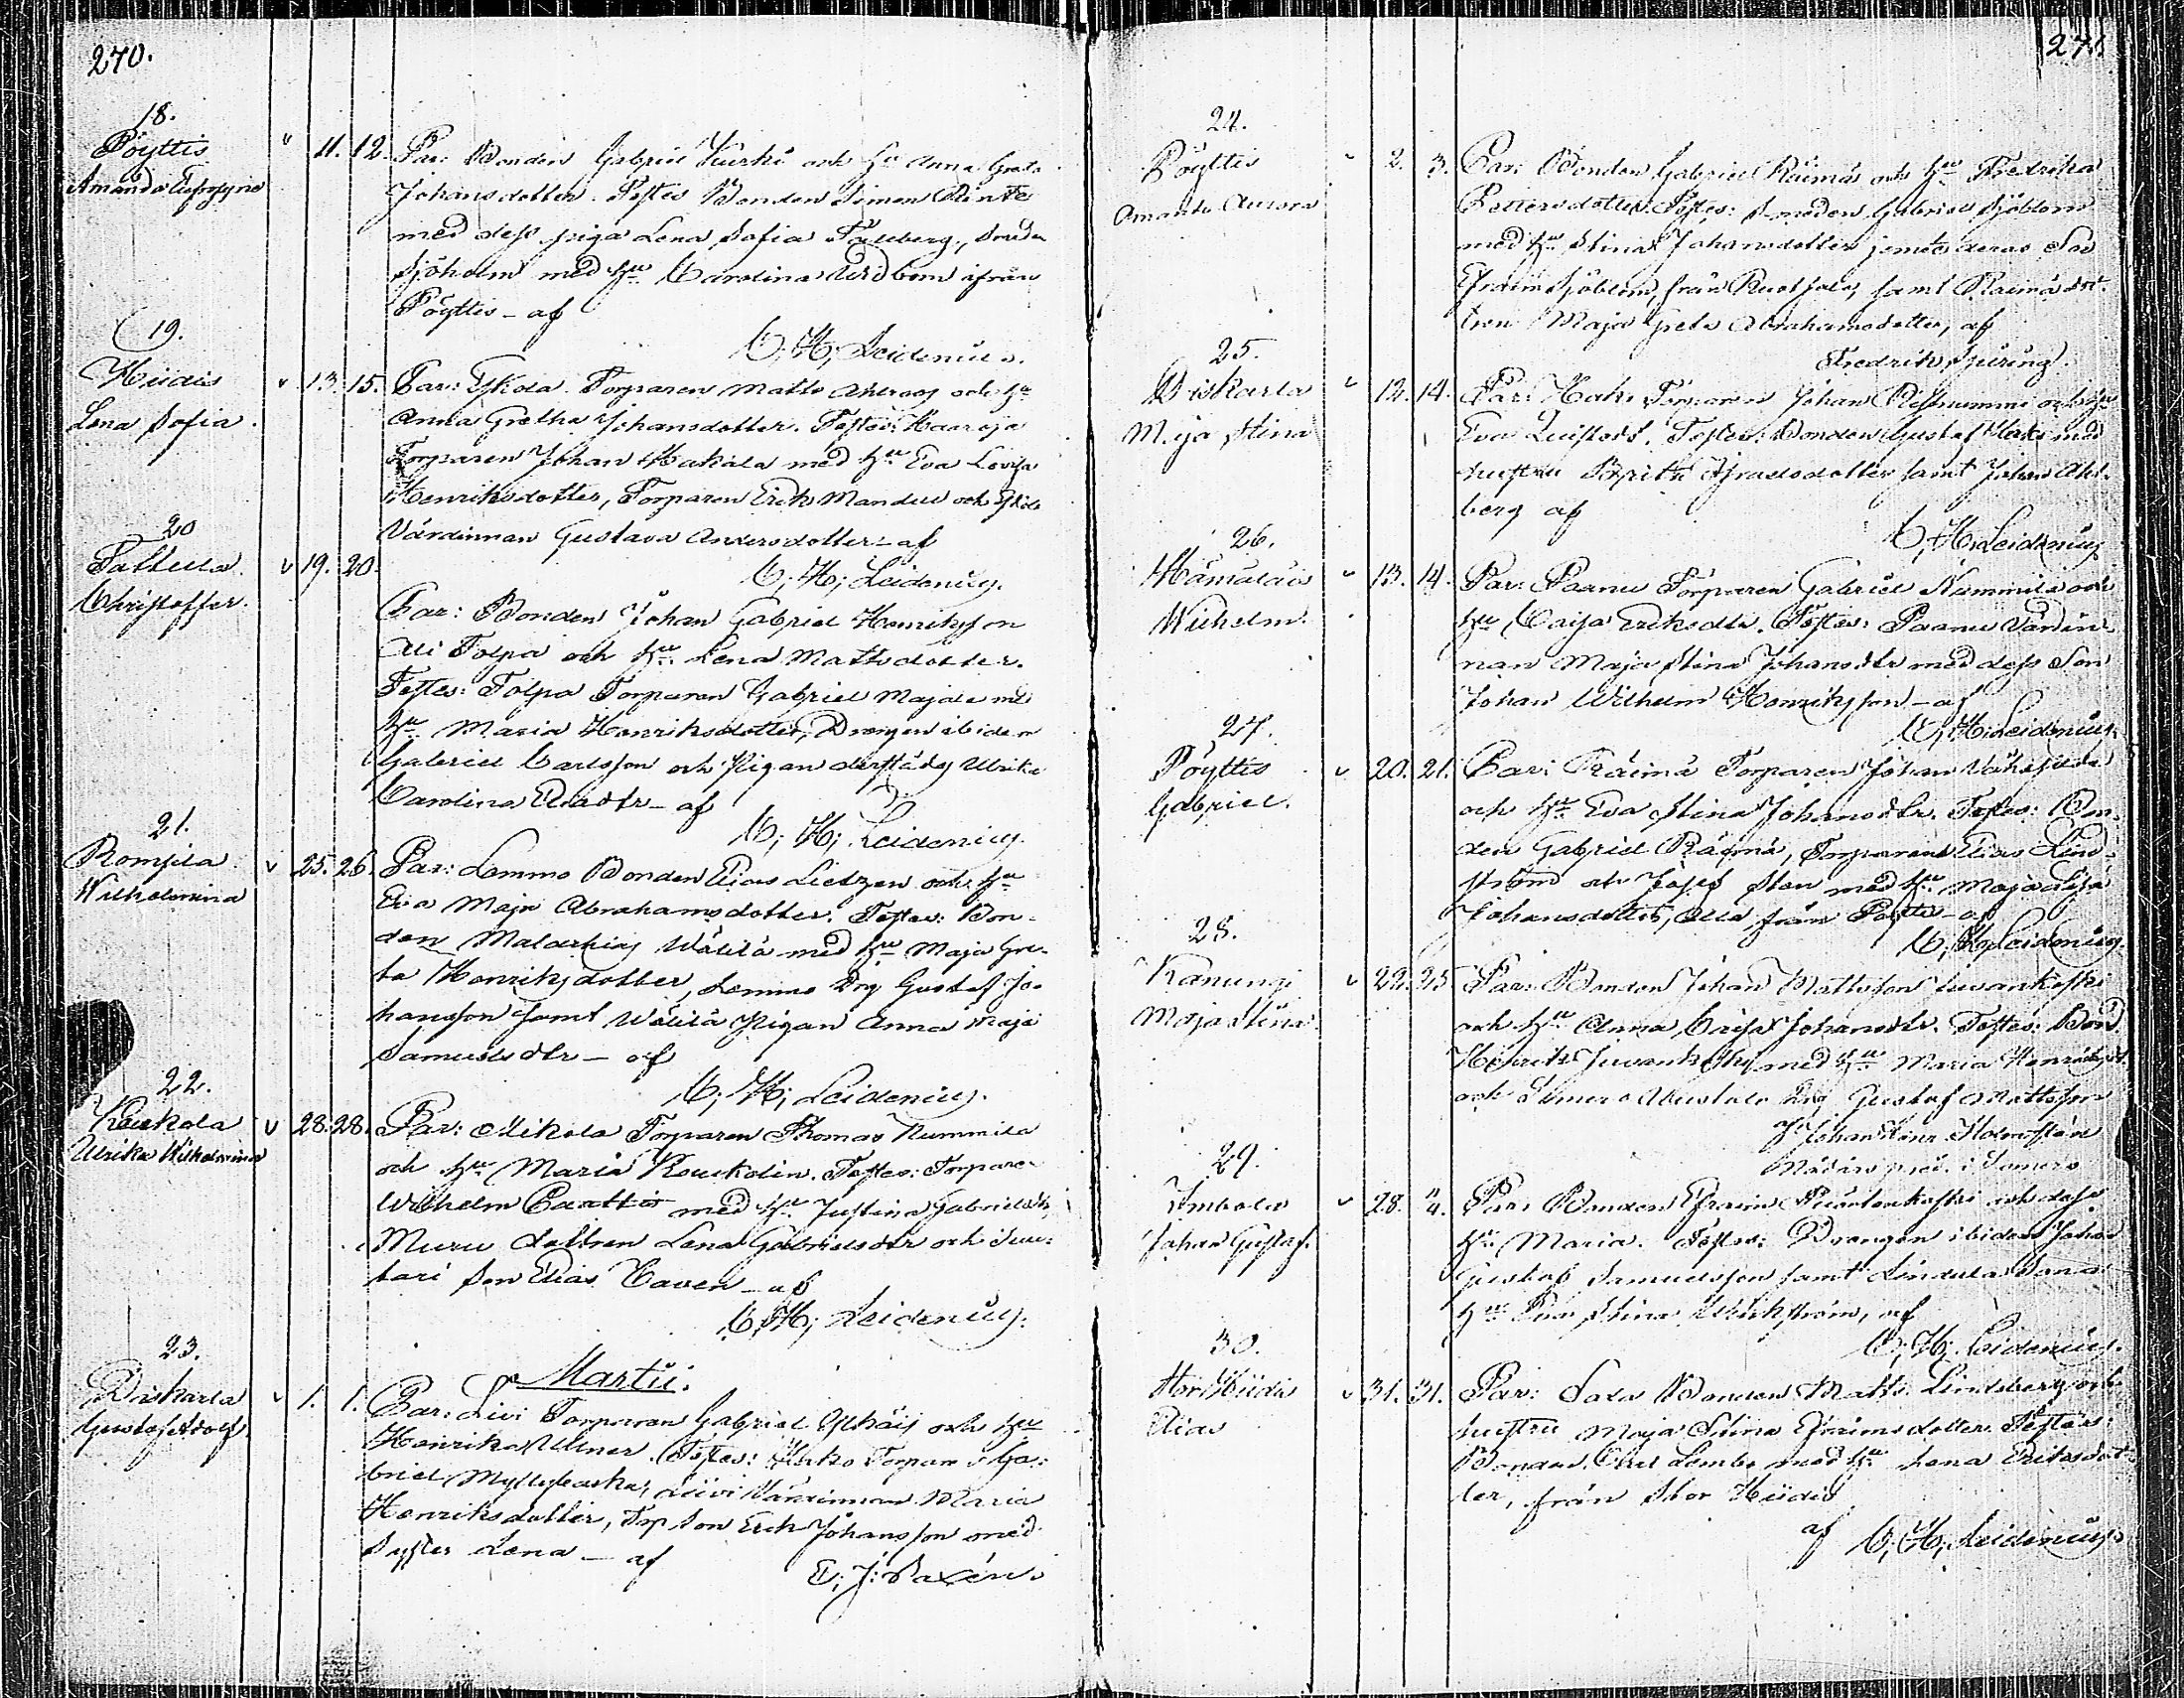 270.
18.
Pöyttis
Amanda Eufrosyne
v 11. 12. Par: Bonden Gabriel Kurki och Hu Anna Greta
Johansdotter. Testes Bonden Simon Rinte
med dess piga Lena Sofia Tallberg, Smeden
Sjöholm med Hu Carolina Widbom ifrån
Pöyttis - af
C; H; Leidenius.
19.
Hiidis
Lena Sofia.
v 13. 15. Par: Eskola Torparen Matts Ahlroos och Hu
Anna Gretha Johansdotter. Testes: Haaroja
Torparen Johan Hakala med Hu Eva Lovisa
Henriksdotter, Torparen Erick Mandell och Eskola
Värdinnan Gustava Andersdotter - af
C; H; Leidenius.
20
Tattula
Christoffer.
v 19. 20.
Par: Bonden Johan Gabriel Henriksson
Ali Tolpa och Hu Lena Mattsdotter.
Testes: Tolpa Torparen Gabriel Majala med
Hu Maria Henriksdotter, Drengen ibidem
Gabriel Carlsson och Pigan derstädes Ulrika
Carolina Eliædtr - af
C; H; Leidenius.
21.
Romsila
Wilhelmina
v 25. 26. Par: Lemmo Bonden Elias Lietzen och Hu
Eva Maja Abrahamsdotter. Testes: Bon-
den Malachias Wälilä med Hu Maja Gre-
ta Henriksdotter, Lemmo Drg Gustaf Jo-
hansson samt Wälilä Pigan Anna Maja
Samuelsdtr - af
C; H; Leidenius.
22.
Koukola
Ulrika Wilhelmina
v 28. 28. Par: Mikola Torparen Thomas Nummila
och Hu Maria Kouckolin. Testes: Torparen
Wilhelm med Hu Justina Gabrielsdtr,
Muru dottren Lena Gabrielsdtr och Suu-
tari Son Elias Caven - af
C; H; Leidenius.
Martii.
23.
Wiskarla
Gustaf Adolf.
v 1. 1. Par: Livi Torparen Gabriel och Hu
Henrika Ullner. Testes: Torparen Ga-
briel Myllykoska, Liivi Värdinnan Maria
Henriksdotter, Trp Son Erik Johansson med
Syster Lena - af
E; J; Saxén.
271.
24.
Pöyttis
Amanda Aurora
v 2. 3. Par: Bonden Gabriel Räimä och Hu Fredrika
Pettersdotter. Testes: Smeden Gabriel Sjöblom
med Hu Stina Johansdotter jemte deras Son
Efraim Sjöblom, från samt Räimä dot-
tren Maja Greta Abrahamsdotter, af
Fredrik Spüring.
25.
Wiskarla
Maja Stina
v 12. 14. Par: Torparen Johan och Hu
Eva Testes: Bonden Gustaf med
hustru Israelsdotter samt Johan Ahl-
berg af
C; H; Leidenius
26.
Hämäläis
Wilhelm.
v 13. 14. Par: Paanu Torparen Gabriel Nummila och
Hu Caisa Eriksdtr. Testes: Paanu Värdin-
nan Maja Stina Johansdtr med dess Son
Johan Wilhelm Henriksson - af
C; H; Leidenius.
27.
Pöyttis
Gabriel.
v 20. 21. Par: Räimä Torparen Johan
och Hu Eva Stina Johansdtr. Testes: Bon-
den Gabriel Räimä, Torparene Elias Lind-
ström och Josef Sten med Hu Maja Lisa
Johansdotter, alla från Pöyttis - af
C; H; Leidenius.
28.
Kanungi
Maja Stina
v 22. 25 Par: Bonden Johan Mattsson Juvankoski
och Hu Anna Caisa Johansdtr. Testes: Bond.
Henrik Juvankoski med Hu Maria Henriksdt
och Drg Gustaf Mattsson
Johan Henr. Holmstén
pred. i Somero
29.
Johan Gustaf.
v 28. 4. Par: Bonden Efraim och dess
Hu Maria. Testes: Drengen ibidem Johan
Gustaf Samuelsson samt Lindula
Hu Eva Stina Wickström, af
C; H; Leidenius.
30.
Stor Hiidis
Elias
v 31. 31. Par: Sala Bonden Matts Lindberg och
hustru Maja Stina Efraimsdotter. Testes:
Bonden Carl Lembo med Hu Lena Eriksdot-
ter, från Stor Hiidis
af C; H; Leidenius.